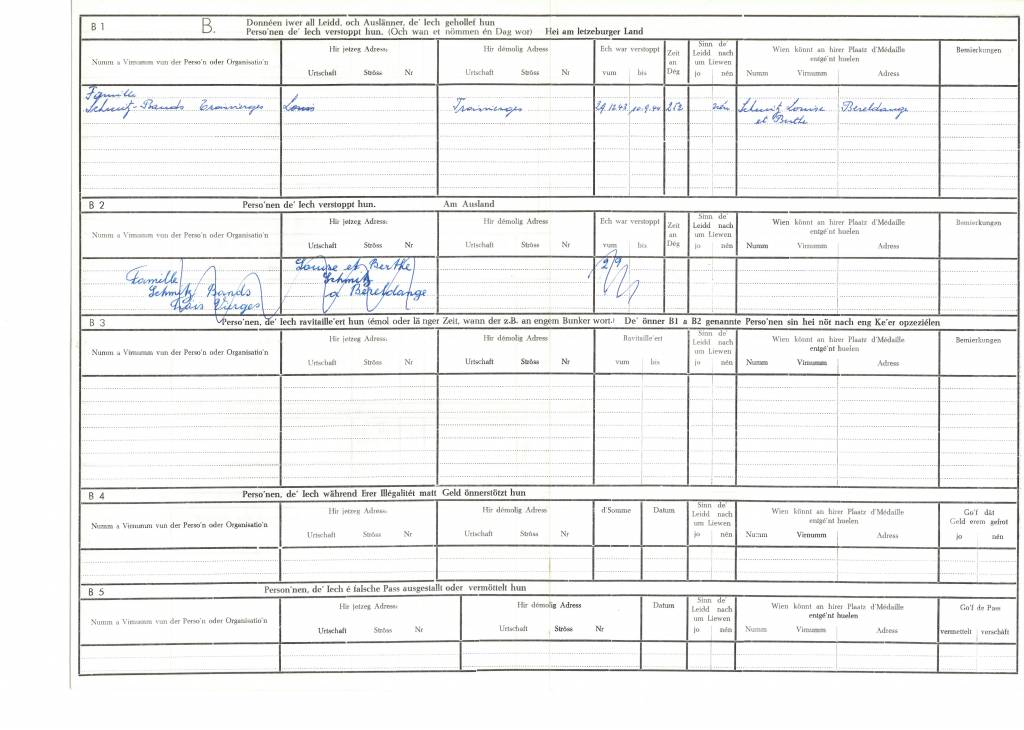 B 1
B.
Donnéen iwer all Leidd, och Auslänner, de' Iech gehollef hun
Perso'nen de' Iech verstoppt hun. (Och wan et nömmen én Dag wor) Hei am letzeburger Land
Numm a Virnumm vun der Perso'n oder Organisatio'n
Hir jetzeg Adress:
Urtschaft Ströss Nr
Hir démolig Adress:
Urtschaft Ströss Nr
Ech war verstoppt
vum bis
Zeit an Dég
Sinn de' Leidd nach um Liewen
jo nén
Wien könnt an hirer Plaatz d'Médaille entgé'nt huelen
Numm Virnumm Adress
Bemierkungen
Famille
Schmitz-Bands
Louis
29.12.43 10.9.44 252 nén Schmitz Louise Bereldange
et Berthe
B 2
Perso'nen de' Iech verstoppt hun. Am Ausland
Numm a Virnumm vun der Perso'n oder Organisatio'n
Hir jetzeg Adress:
Urtschaft Ströss Nr
Hir démolig Adress
Urtschaft Ströss Nr
Ech war verstoppt
vum bis
Zeit an Dég
Sinn de' Leidd nach um Liewen
jo nén
Wien könnt an hirer Plaatz d'Médaille entgé'nt huelen
Numm Virnumm Adress
Bemierkungen
Famille
Schmitz Bands
Louise et Berthe
Schmitz
a Béreldange
29
B 3
Perso'nen, de' Iech ravitaille'ert hun (émol oder lä nger Zeit, wann der z.B. an engem Bunker wort.) De' önner B1 a B2 genannte Perso'nen sin hei nöt nach eng Ke'er opzeziélen
Numm a Virnumm vun der Perso'n oder Organisatio'n
Hir jetzeg Adress:
Urtschaft Ströss Nr
Hir démolig Adress
Urtschaft Ströss Nr
Ravitaille'ert
vum bis
Sinn de' Leidd nach um Liewen
jo nén
Wien könnt an hirer Plaatz d'Médaille entgé'nt huelen
Numm Virnumm Adress
Bemierkungen
B 4
Perso'nen, de' Iech während Erer Illégalitét matt Geld önnerstötzt hun
Numm a Virnumm vun der Perso'n oder Organisatio'n
Hir jetzeg Adress:
Urtschaft Ströss Nr
Hir démolig Adress:
Urtschaft Ströss Nr
d'Somme
Datum
Sinn de' Leidd nach um Liewen
jo nén
Wien könnt an hirer Plaatz d'Médaille entgé'nt huelen
Numm Virnumm Adress
Go'f dát Geld erem gefrot
jo nén
B 5
Person'nen, de' Iech é falsche Pass ausgestallt oder vermöttelt hun
Numm a Virnumm vun der Perso'n oder Organisatio'n
Hir jetzeg Adress:
Urtschaft Ströss Nr
Hir démolig Adress
Urtschaft Ströss Nr
Datum
Sinn de' Leidd nach um Liewen
jo nén
Wien könnt an hirer Plaatz d'Médaille entgé'nt huelen
Numm Virnumm Adress
Go'f de Pass
vermettelt verschâft